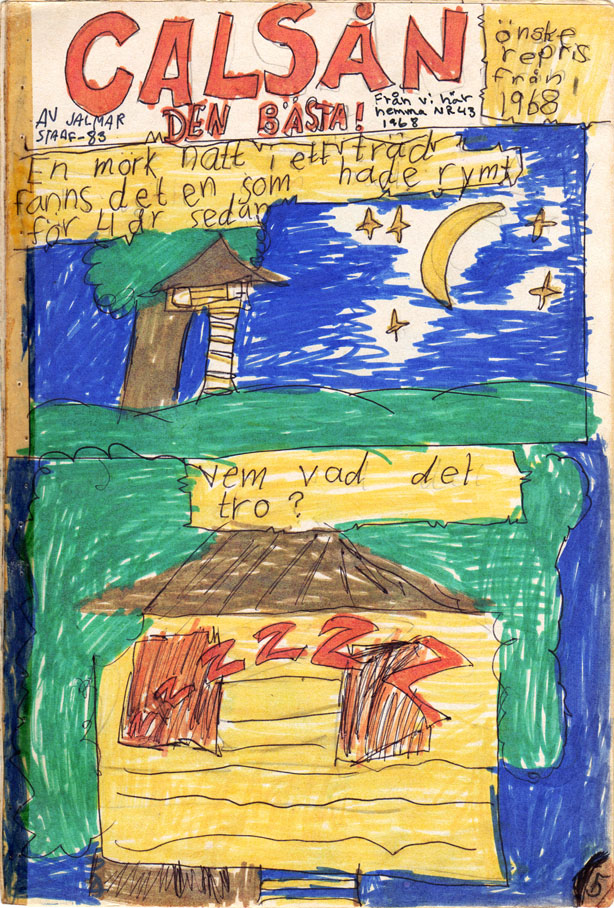 CALSÅN
DEN BÄSTA!
AV JALMAR
STAAF-83
Från vi här
hemma NR 43
1968
önske
repris
från
1968
En mörk natt i ett träd
fanns det en som hade rymt
för 4 år sedan
vem vad det
tro?
zzzzzz
5